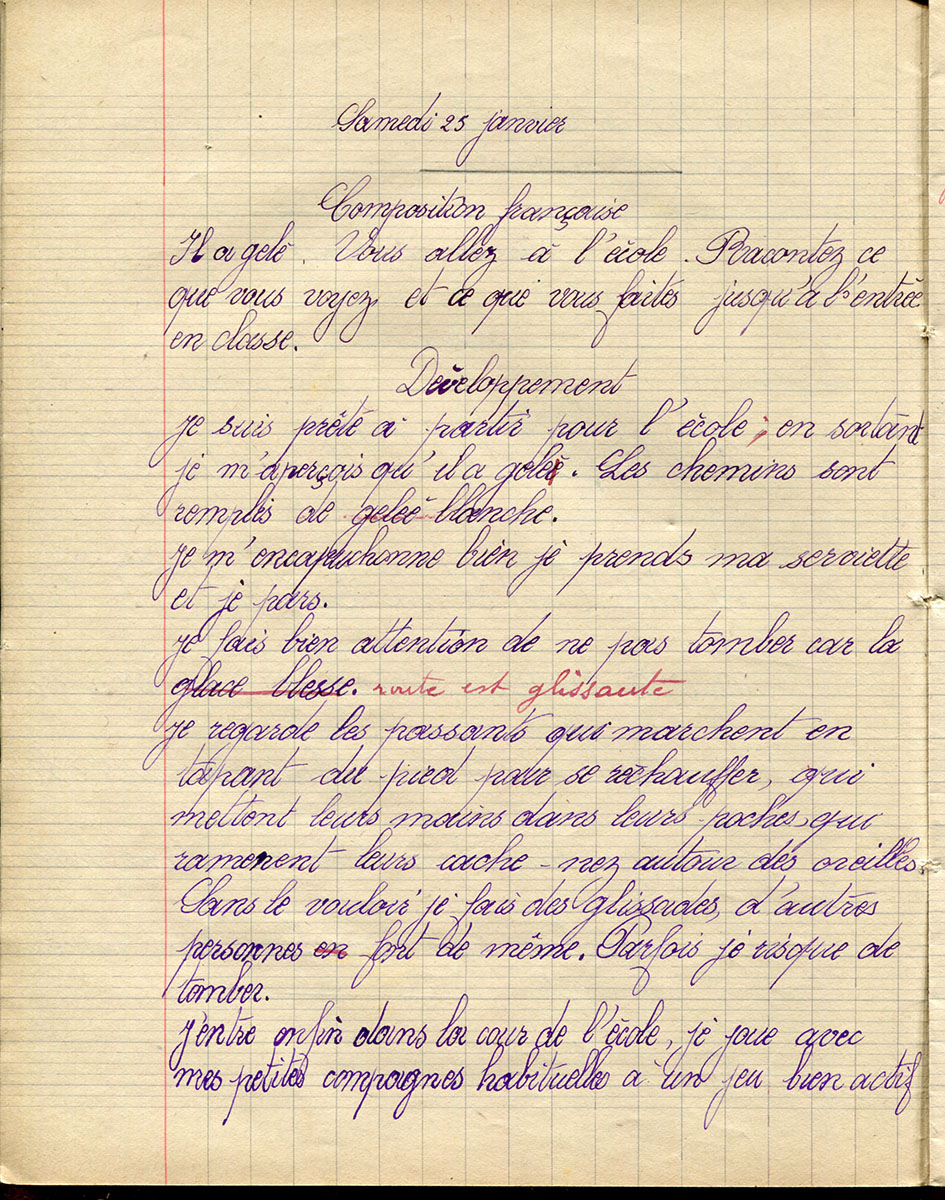 Samedi 25 janvier
Composition française
Il a gelé. Vous allez à l'école. Racontez ce
que vous voyez et ce que vous faites jusqu'à l'entrée
en classe.
Développement
Je suis prête à partir pour l'école ; en sortant
je m'aperçois qu'il a gelé. Les chemins sont
remplis de gelée blanche.
Je m'encapuchonne bien je prends ma serviette
et je pars.
Je fais bien attention de ne pas tomber car la
glace blesse. route est glissante
Je regarde les passants qui marchent en
tapant du pied pour se réchauffer, qui
mettent leurs mains dans leurs poches, qui
ramenent leurs cache-nez autour des oreilles.
Sans le vouloir je fais des glissades, d'autres
personnes en font de même. Parfois je risque de
tomber.
J'entre enfin dans la cour de l'école, je joue avec
mes petites compagnes habituelles à un jeu bien actif